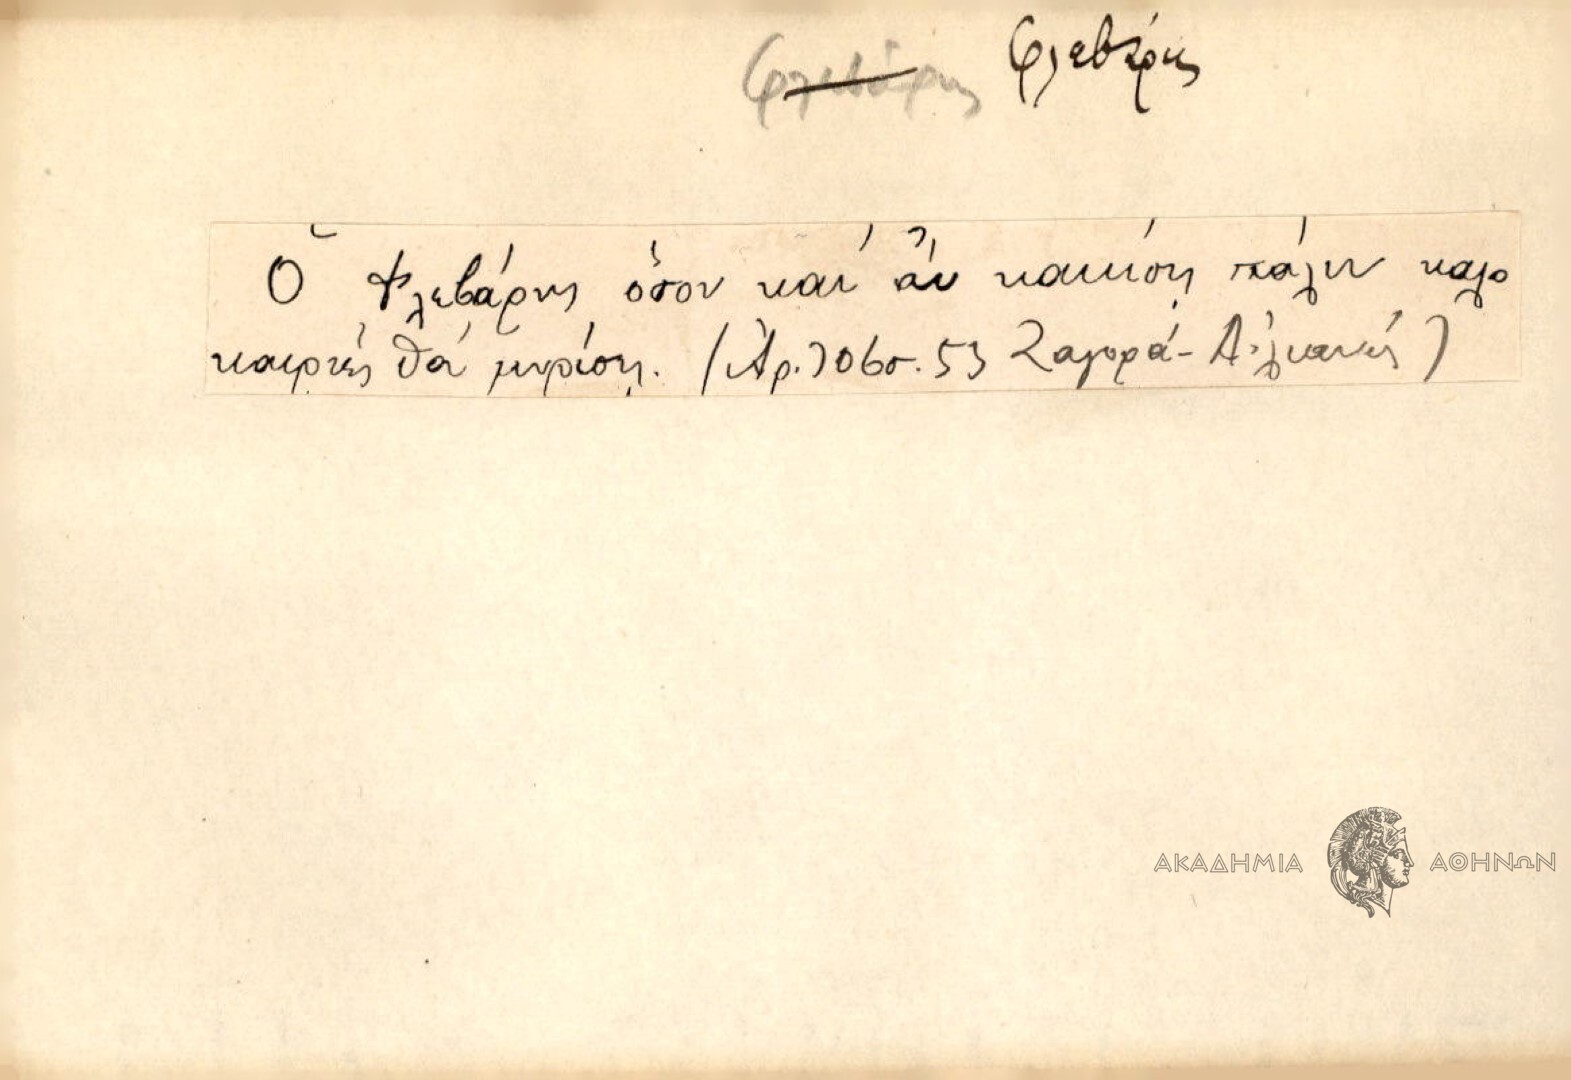 Φλεβάρης Φλεβάρης
Ὁ Φλεβάρης ὅσον καὶ ἂν κακιώσῃ πάλιν καλο
καιριές θά μυρίσῃ. (Ἀρ. 706 σ. 53 Ζαγορά-
ΑΚΑΔΗΜΙΑ ΑΘΗΝΩΝ